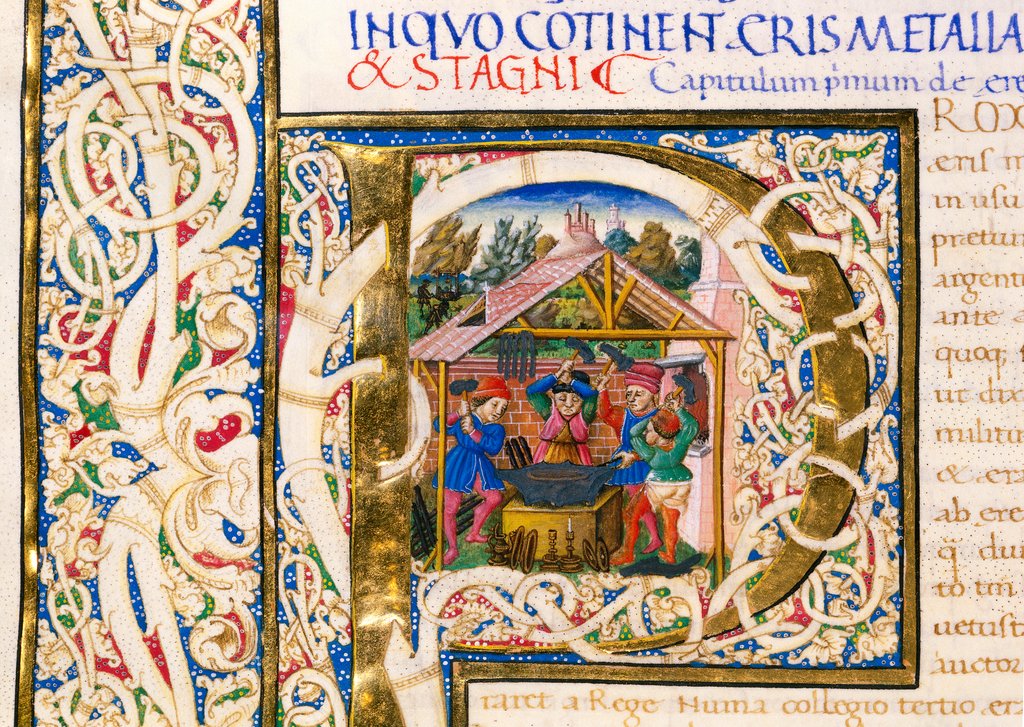 INQVO COTINENT ÆRIS METALLA
& STAGNI C Capitulum p̄mum de ęre
P ROX
æris m
in usu
prætura
argent
ante
quoq;
ut dix
militũ
& ær
ab ere
q̄ du
to tm
uetust
auctor
raret a Rege Numa collegio tertio ęra